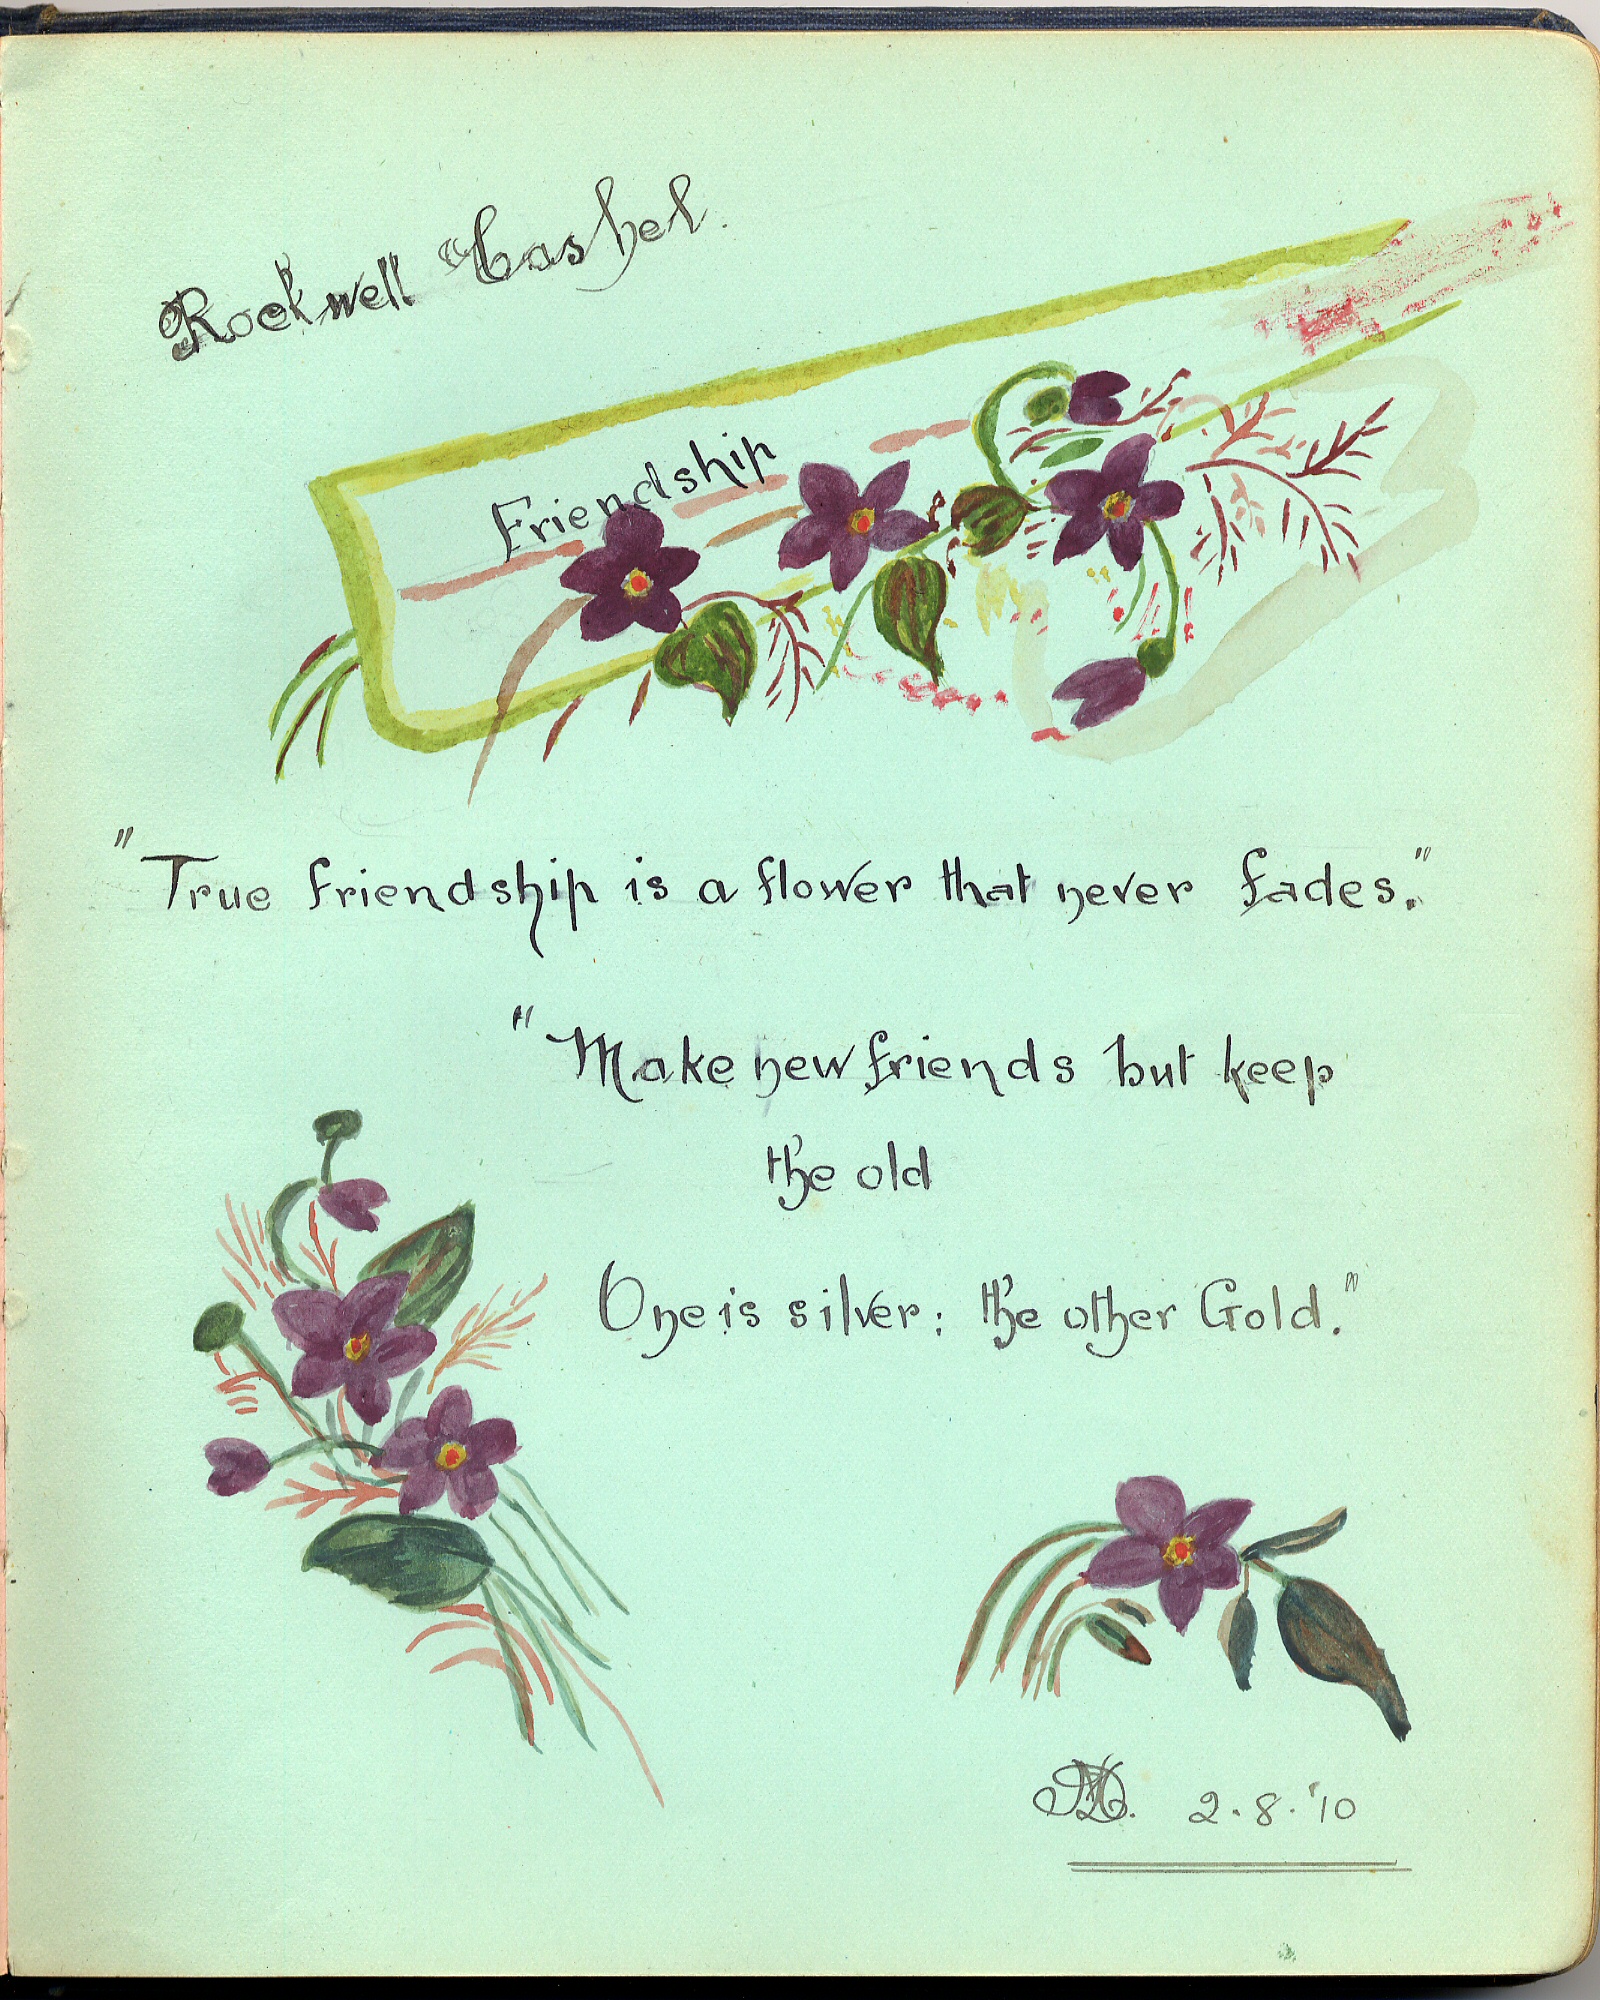 Rockwell Cashel.
Friendship
"True friendship is a flower that never fades."
"Make new friends but keep
the old
One is silver: the other Gold."
2.8.'10